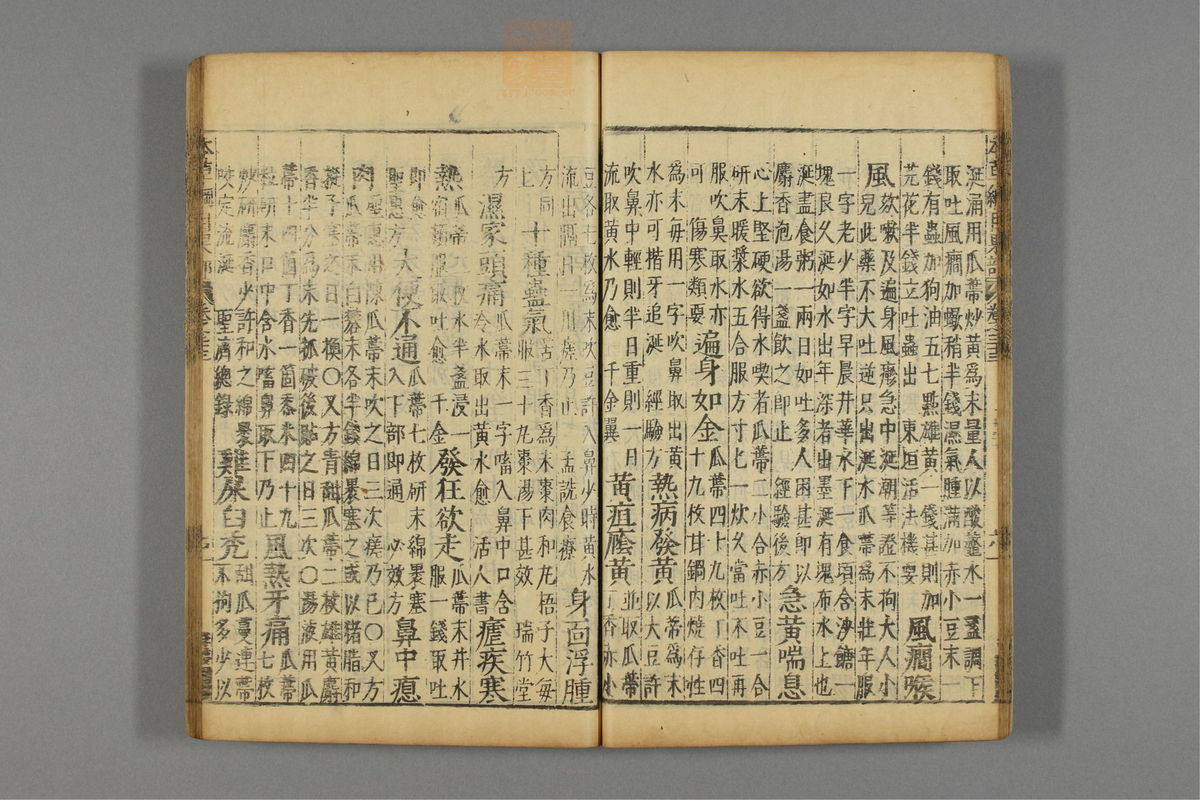 涎涌用瓜蒂炒黃爲末量人以酸虀水一盞調下
取吐風癇加蠍稍半錢濕氣腫滿加赤小豆末一
錢有蟲加狗油五七點雄黃一錢甚則加
芫花半錢立吐蟲出 東垣活法機要 風癇喉
風 欬嗽及遍身風癮急中涎潮等證不拘大人小
兒此藥不大吐逆只出涎水瓜蒂爲末壯年服
一字老少半字早晨井華水下一食頃含沙餹一
塊良久涎如水出年深者出墨涎有塊布水上也
涎盡食粥一兩日如吐多人困甚即以
麝香泡湯一盞飲之即止 經驗後方 急黃喘息
心上堅硬欲得水喫者瓜蒂二小合赤小豆一合
研末暖漿水五合服方寸匕一炊久當吐不吐再
服吹鼻取水亦
可 傷寒類要 遍身如金 瓜蒂四十九枚丁香四十九枚甘鍋內燒存性
爲末每用一字吹鼻取出黃
水亦可揩牙追涎 經驗方 熱病發黃 瓜蒂爲末以大豆許
吹鼻中輕則半日重則一日
流取黃水乃愈 千金翼 黃疸癊黃 並取瓜蒂丁香赤小
豆各七枚爲末吹豆許入鼻少時黃水
流出隔日一用瘥乃止 孟詵食療 身面浮腫
方同上 十種蠱氣 苦丁香爲末棗肉和丸梧子大每服三十丸棗湯下甚效 瑞竹堂
方 濕家頭痛 瓜蒂末一字㗜入鼻中口含冷水取出黃水愈 活人書 瘧疾寒
熱 瓜蒂二枚水半盞浸一宿頓服取吐愈 千金 發狂欲走 瓜蒂末井水服一錢取吐
即愈 聖惠方 大便不通 瓜蒂七枚研末綿裹塞入下部即通 必效方 鼻中瘜
肉 聖惠用陳瓜蒂末吹之日三次瘥乃已〇又方
瓜蒂末白礬末各半錢綿裹塞之或以猪脂和
挺子塞之日一換〇又方青甜瓜蒂二枚雄黃麝
香半分爲末先抓破後貼之日三次〇湯液用瓜
蒂十四箇丁香一箇黍米四十九
粒研末口中含水㗜鼻取下乃止 風熱牙痛 瓜蒂七枚
炒研麝香少許和之綿裹
咬定流涎 聖濟總錄 雞屎白禿 甜瓜蔓連蒂不拘多少以